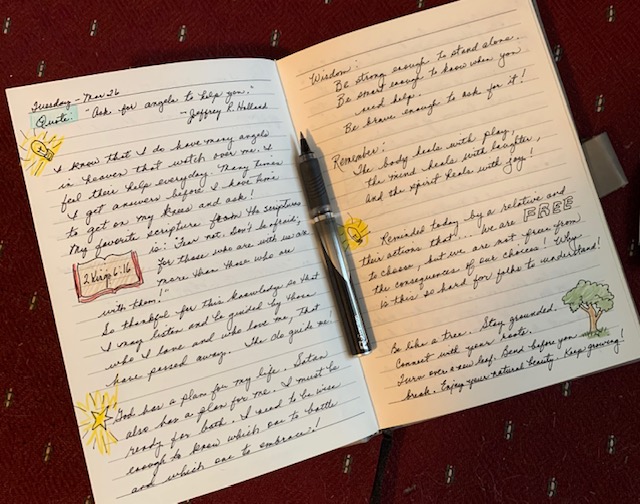 Tuesday - Mar 26
Quote: "Ask for angels to help you."
~ Jeffrey R. Holland
I know that I do have many angels
in heaven that watch over me. I
feel their help everyday. Many times
I get answers before I have time
to get on my knees and ask!
My favorite scripture from the scriptures
is: Fear not. Don't be afraid;
for those who are with us are
2 Kings 6:16
more than those who are
with them!
So thankful for this knowledge so that
I may listen and be guided by those
who I love and who love me, that
have passed away. The do guide me!
God has a plan for my life. Satan
also has a plan for me. I must be
ready for both. I need to be wise
enough to know which one to battle
and which one to embrace!
Wisdom:
Be strong enough to stand alone.
Be smart enough to know when you
need help.
Be brave enough to ask for it!
Remember:
The body heals with play,
the mind heals with laughter,
And the spirit heals with joy!
Reminded today by a relative and
their actions that... we are FREE
to choose, but we are not free from
the consequences of our choices! Why
is this so hard for folks to understand!
Be like a tree. Stay grounded.
Connect with your roots.
Turn over a new leaf. Bend before you
break. Enjoy your natural beauty. Keep growing!